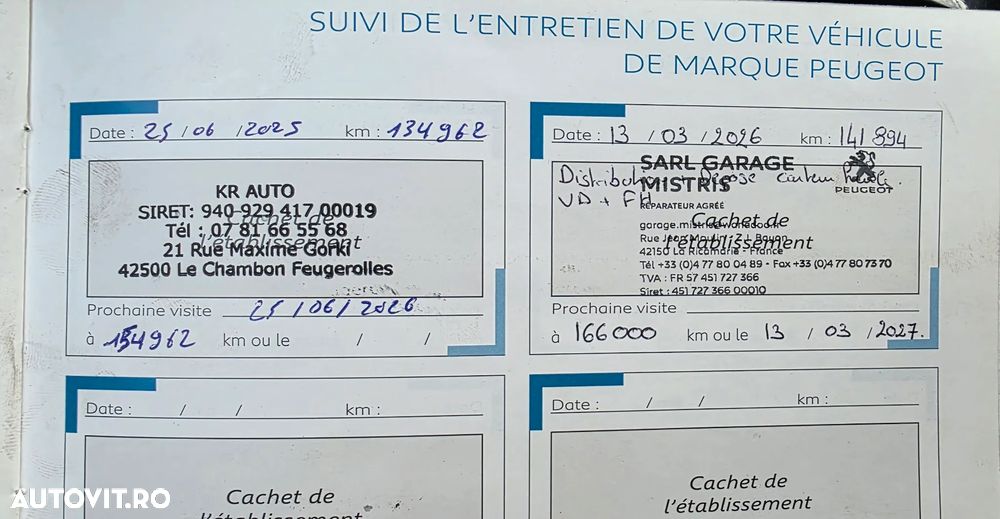 SUIVI DE L'ENTRETIEN DE VOTRE VÉHICULE
DE MARQUE PEUGEOT
Date : 25 / 06 / 2025 km : 134962
KR AUTO
SIRET: 940 929 417 00019
Cachet de
Tél : 07 81 66 55 68
l'établissement
21 Rue Maxime Gorki
42500 Le Chambon Feugerolles
Prochaine visite 25 / 06 / 2026
à 154962 km ou le / /
Date : 13 / 03 / 2026 km : 141 894
SARL GARAGE
MISTRIS
PEUGEOT
Distribution + Dépose
VD + FH
RÉPARATEUR AGRÉÉ
garage.mistris@wanadoo.fr
Cachet de
Rue Jean Moulin - Z.I. Bayon
l'établissement
42150 La Ricamarie - France
Tél +33 (0)4 77 80 04 89 - Fax +33 (0)4 77 80 73 70
TVA : FR 57 451 727 366
Siret : 451 727 366 00010
Prochaine visite
à 166000 km ou le 13 / 03 / 2027.
Date : / / km :
Cachet de
l'établissement
Date : / / km :
Cachet de
l'établissement
AUTOVIT.RO